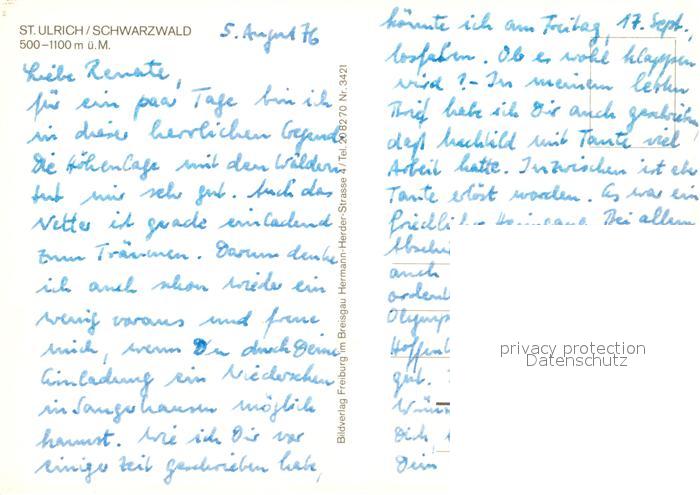 ST. ULRICH / SCHWARZWALD
500–1100 m ü. M.
5. August 76
Liebe Renate,
für ein paar Tage bin ich
in dieser herrlichen Gegend.
Die Höhenlage mit den Wäldern
tut mir sehr gut. Auch das
Wetter ist gerade einladend
zum Träumen. Darum denke
ich auch schon wieder ein
wenig voraus und freue
mich, wenn Du durch Deine
Einladung ein Wiedersehen
in Sangerhausen möglich
kannst. Wie ich Dir vor
einiger Zeit geschrieben habe,
Bildverlag Freiburg im Breisgau Hermann-Herder-Strasse 4 / Tel. 208270 Nr. 3421
könnte ich am Freitag, 17. Sept.,
losfahren. Ob es wohl klappen
wird? - In meinem letzten
Brief habe ich Dir auch geschrieben,
daß mit Tante viel
Arbeit hatte. Inzwischen ist
Tante erlöst worden. Es war ein
friedlicher Heimgang. Bei allem
Abschi
auch
ordentl
Olymp
Hoffentl
gut.
Wün
Dich,
Dein
privacy protection
Datenschutz